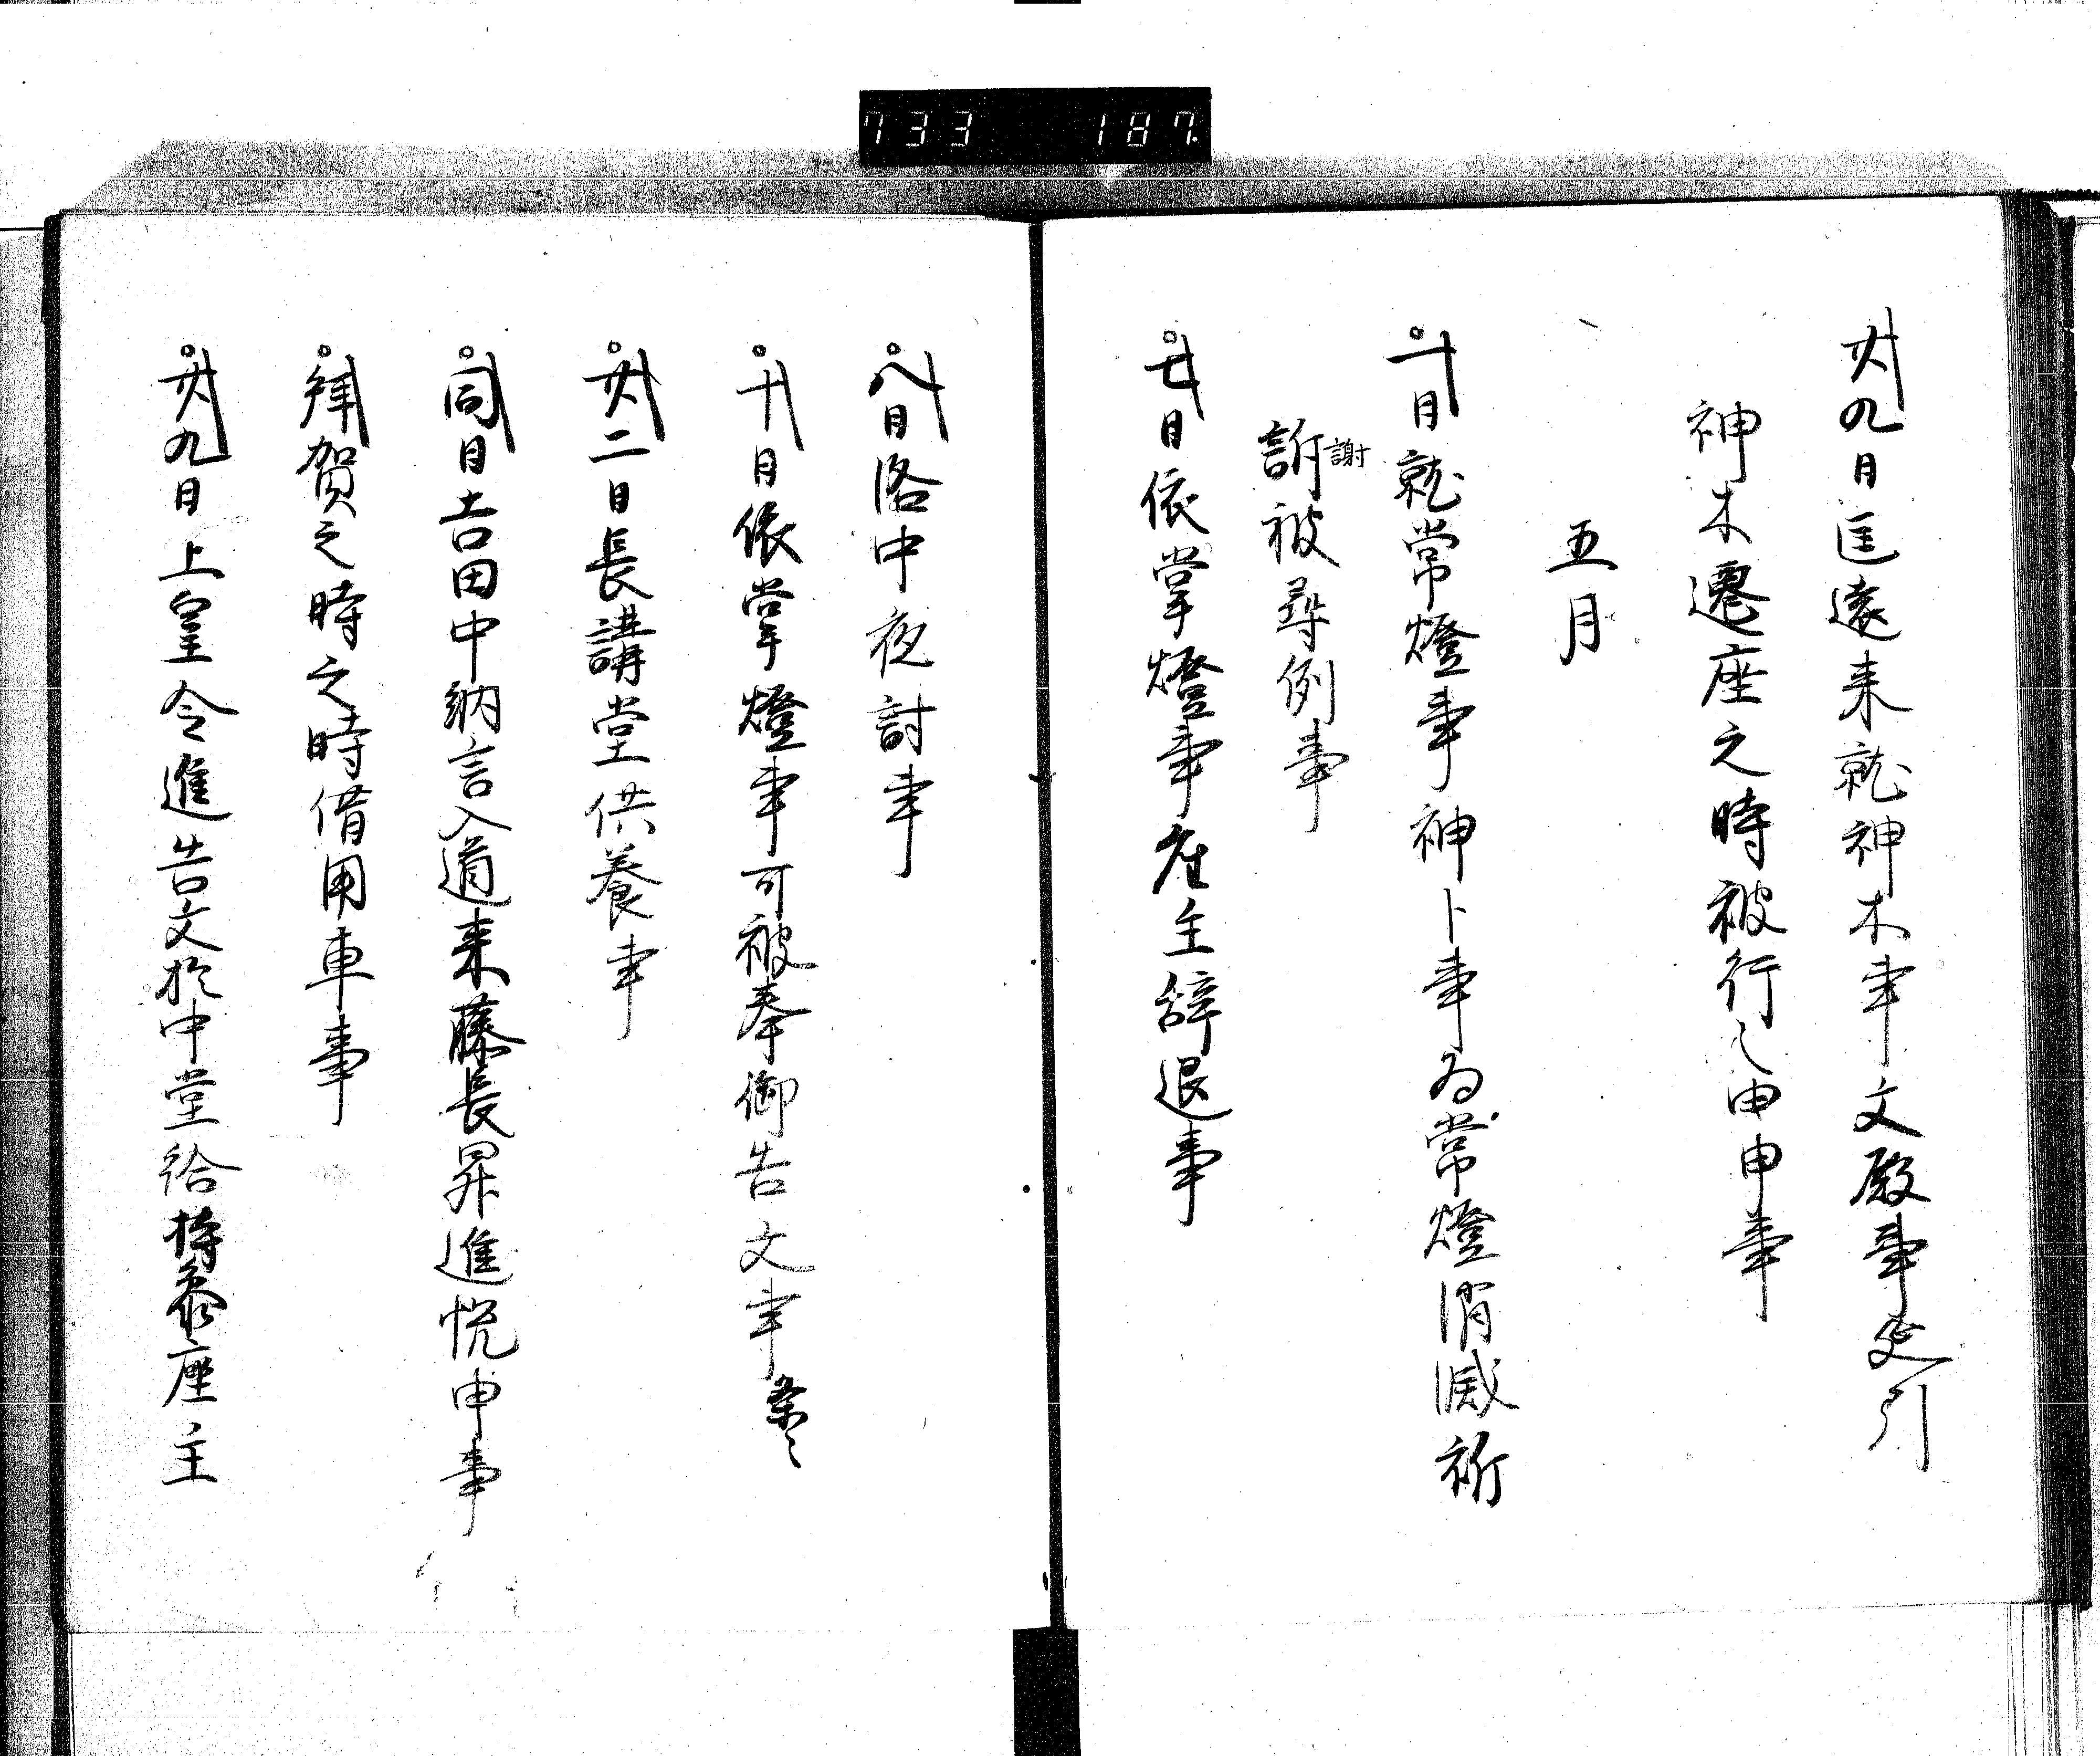 733 187
廿九日匡遠来就神木事文殿事延引
神木遷座之時被行之由申事
五月
一日就常燈事神卜事為常燈消滅祈
謝
訴被尋例事
七日依掌燈事座主辞退事
八日洛中夜討事
十日依掌燈事可被奉御告文事条々
廿二日長講堂供養事
同日吉田中納言入道来藤長昇進悦申事
拝賀之時之時借用車事
廿九日上皇令進告文於中堂給持参座主